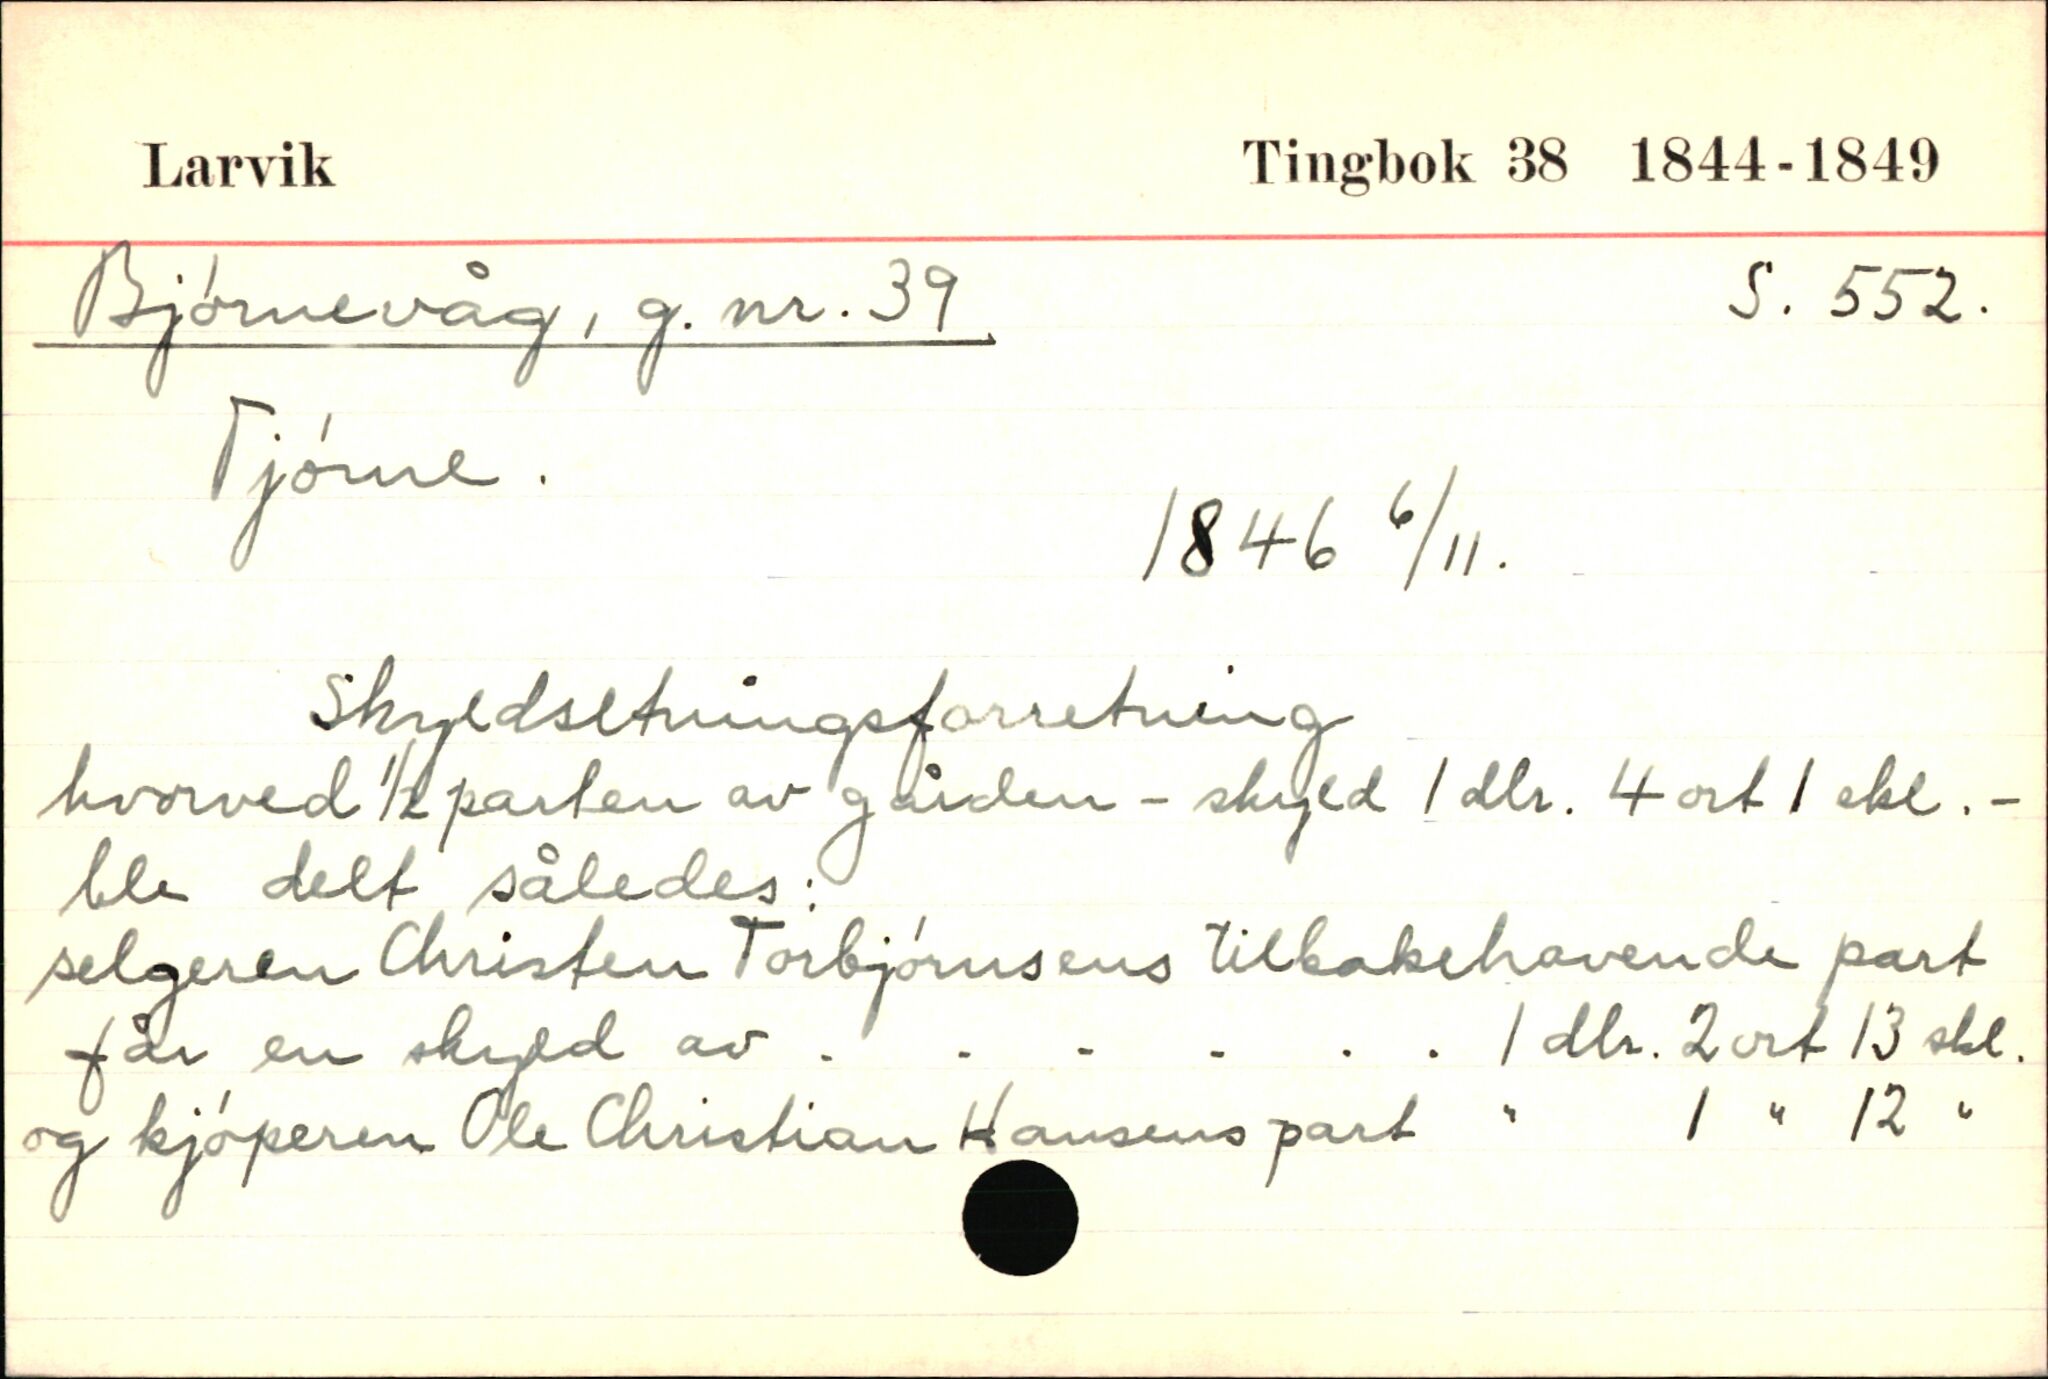 Larvik Tingbok 38 1844-1849
Bjørnevåg, g. nr. 39 S. 552.
Tjøme.
1846 6/11.
Skyldsetningsforretning
hvorved 1/2 parten av gården - skyld 1 dlr. 4 ort 1 skl. -
ble delt således:
selgeren Christen Torbjørnsens tilbakehavende part
får en skyld av . - - - . . 1 dlr. 2 ort 13 skl.
og kjøperen Ole Christian Hansens part " 1 " 12 "